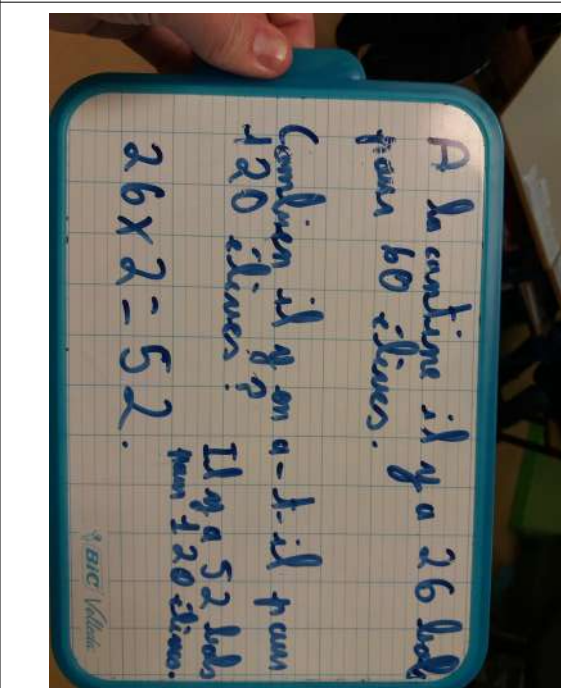 A la cantine il y a 26 bols
pour 60 élèves.
Combien il y en a-t-il pour
120 élèves ?
Il y a 52 bols
26 x 2 = 52.
pour 120 élèves.
BIC Velleda